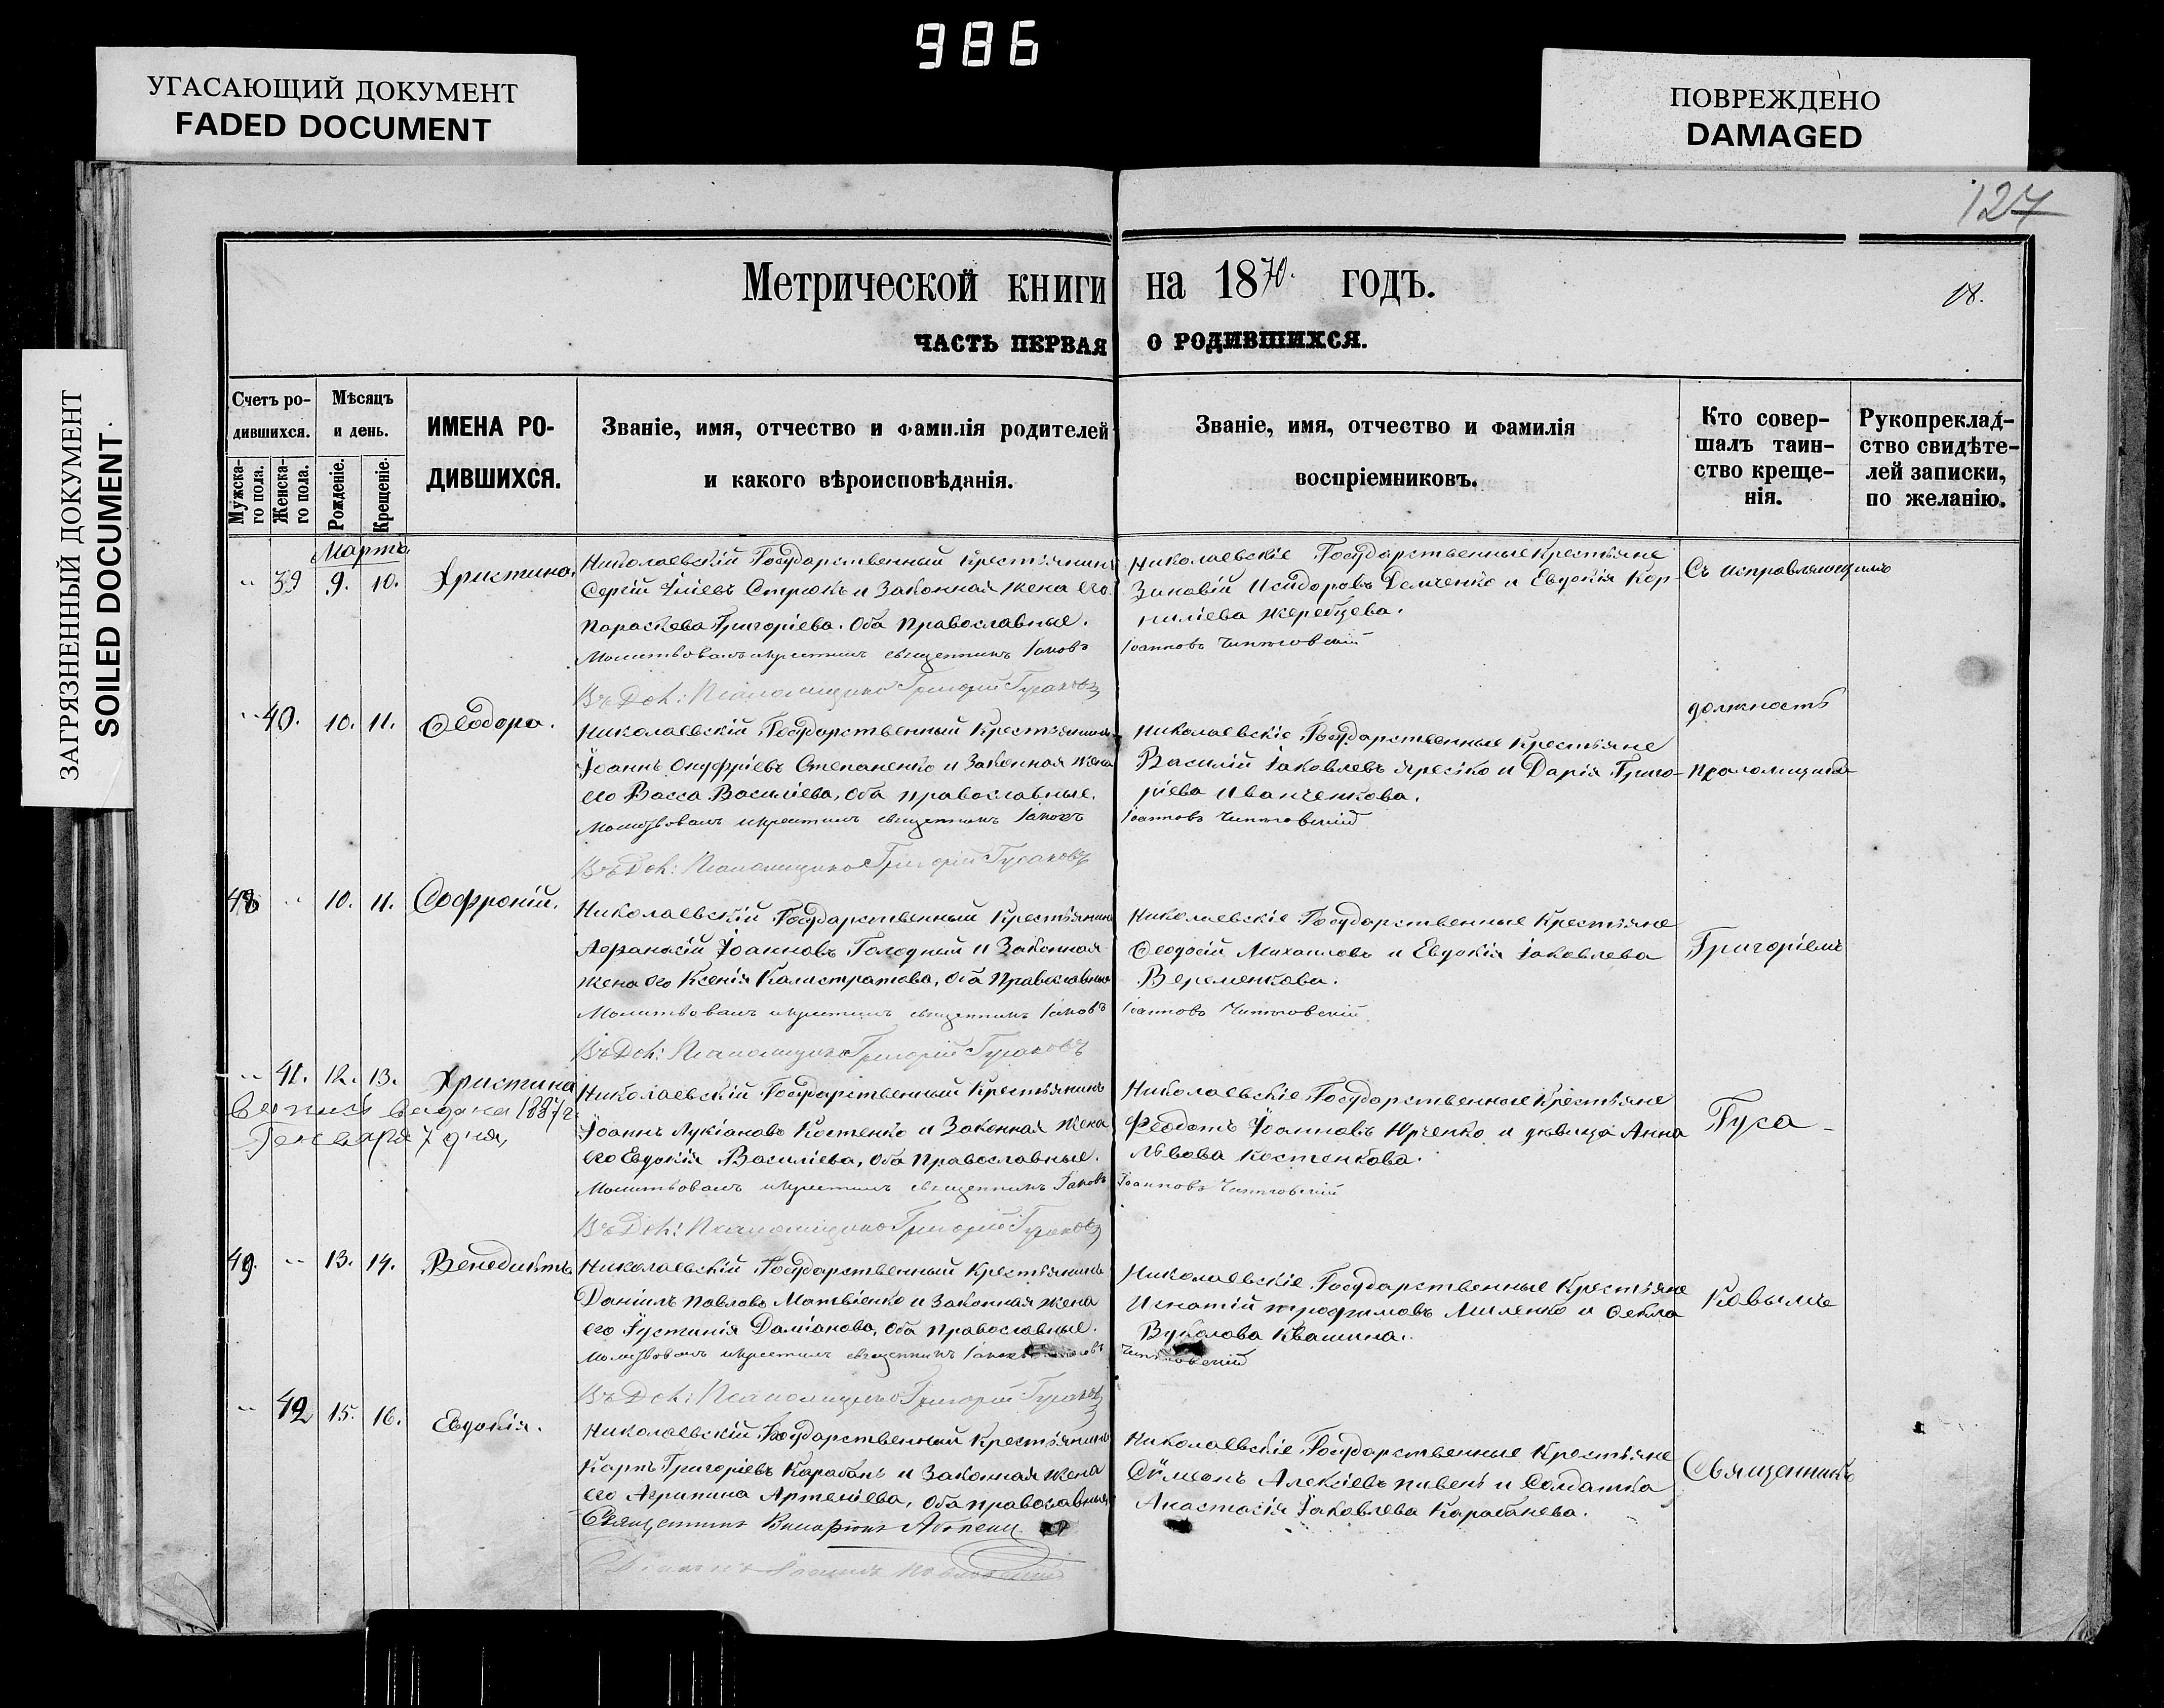 986
УГАСАЮЩИЙ ДОКУМЕНТ
FADED DOCUMENT
ПОВРЕЖДЕНО
DAMAGED
ЗАГРЯЗНЕННЫЙ ДОКУМЕНТ
SOILED DOCUMENT
127
Метрической книги на 1870. годъ.
18.
ЧАСТЬ ПЕРВАЯ О РОДИВШИХСЯ.
Счетъ родившихся.
Мужскаго пола.
Женскаго пола.
Мѣсяцъ и день.
Рожденіе.
Крещеніе.
ИМЕНА РОДИВШИХСЯ.
Званіе, имя, отчество и фамилія родителей
и какого вѣроисповѣданія.
Званіе, имя, отчество и фамилія
воспріемниковъ.
Кто совершалъ таинство крещенія.
Рукоприкладство свидѣтелей записки, по желанію.
Марта
39 9. 10. Христина.
Николаевскій Государственный Крестьянинъ
Сергій Стрюкъ и Законная жена его
Параскева Григоріева. Оба Православные.
Молитвовалъ и крестилъ священникъ Іаковъ
Николаевскіе Государственные Крестьяне
Зиновій Исидоровъ Демченко и Евдокія Кор-
нилієва Жеребцева.
Іоанновъ
Съ исправляющимъ
40. 10. 11. Ѳеодора.
Григорій Гусаковъ
Николаевскій Государственный Крестьянинъ
Іоаннъ Онуфріевъ Степаненко и Законная жена
его Васса Василіева, оба православные.
Молитвовалъ и крестилъ священникъ Іаковъ
Николаевскіе Государственные Крестьяне
Василій Іаковлевъ Яресько и Дарія Григо-
ріева Иванченкова.
Іоанновъ
должность
48 10. 11. Софроній.
Григорій Гусаковъ
Николаевскій Государственный Крестьянинъ
Аѳанасій Іоанновъ Голодный и Законная
жена его Ксенія Калистратова, оба Православные
Молитвовалъ и крестилъ священникъ Іаковъ
Николаевскіе Государственные Крестьяне
Ѳеодосій Михаиловъ и Евдокія Іаковлева
Веременкова.
Іоанновъ
Григоріемъ
41. 12. 13. Христина
Выпись выдана 1887 г.
Генваря 7 дня,
Григорій Гусаковъ
Николаевскій Государственный Крестьянинъ
Іоаннъ Лукіановъ Костенко и Законная жена
его Евдокія Василіева, оба Православные.
Молитвовалъ и крестилъ священникъ Іаковъ
Николаевскіе Государственные Крестьяне
Ѳеодотъ Іоанновъ Юрченко и дѣвица Анна
Львова Костенкова.
Іоанновъ
Гуса-
49. 13. 14. Венедиктъ
Григорій Гусаковъ
Николаевскій Государственный Крестьянинъ
Даніилъ Павловъ Матвіенко и Законная жена
его Іустинія Даміанова, оба православные.
Молитвовалъ и крестилъ священникъ
Николаевскіе Государственные Крестьяне
Игнатій Трофимовъ Миленко и Ѳекла
Вуколова Квашина.
ковымъ
42 15. 16. Евдокія.
Григорій Гусаковъ
Николаевскій Государственный Крестьянинъ
Карпъ Григоріевъ Карабанъ и Законная жена
его Агрипина Артеміева, оба православные
Священникъ
Николаевскіе Государственные Крестьяне
Сѵмеонъ Алексіевъ Пивень и Солдатка
Анастасія Іаковлева Карабанева.
Священникъ